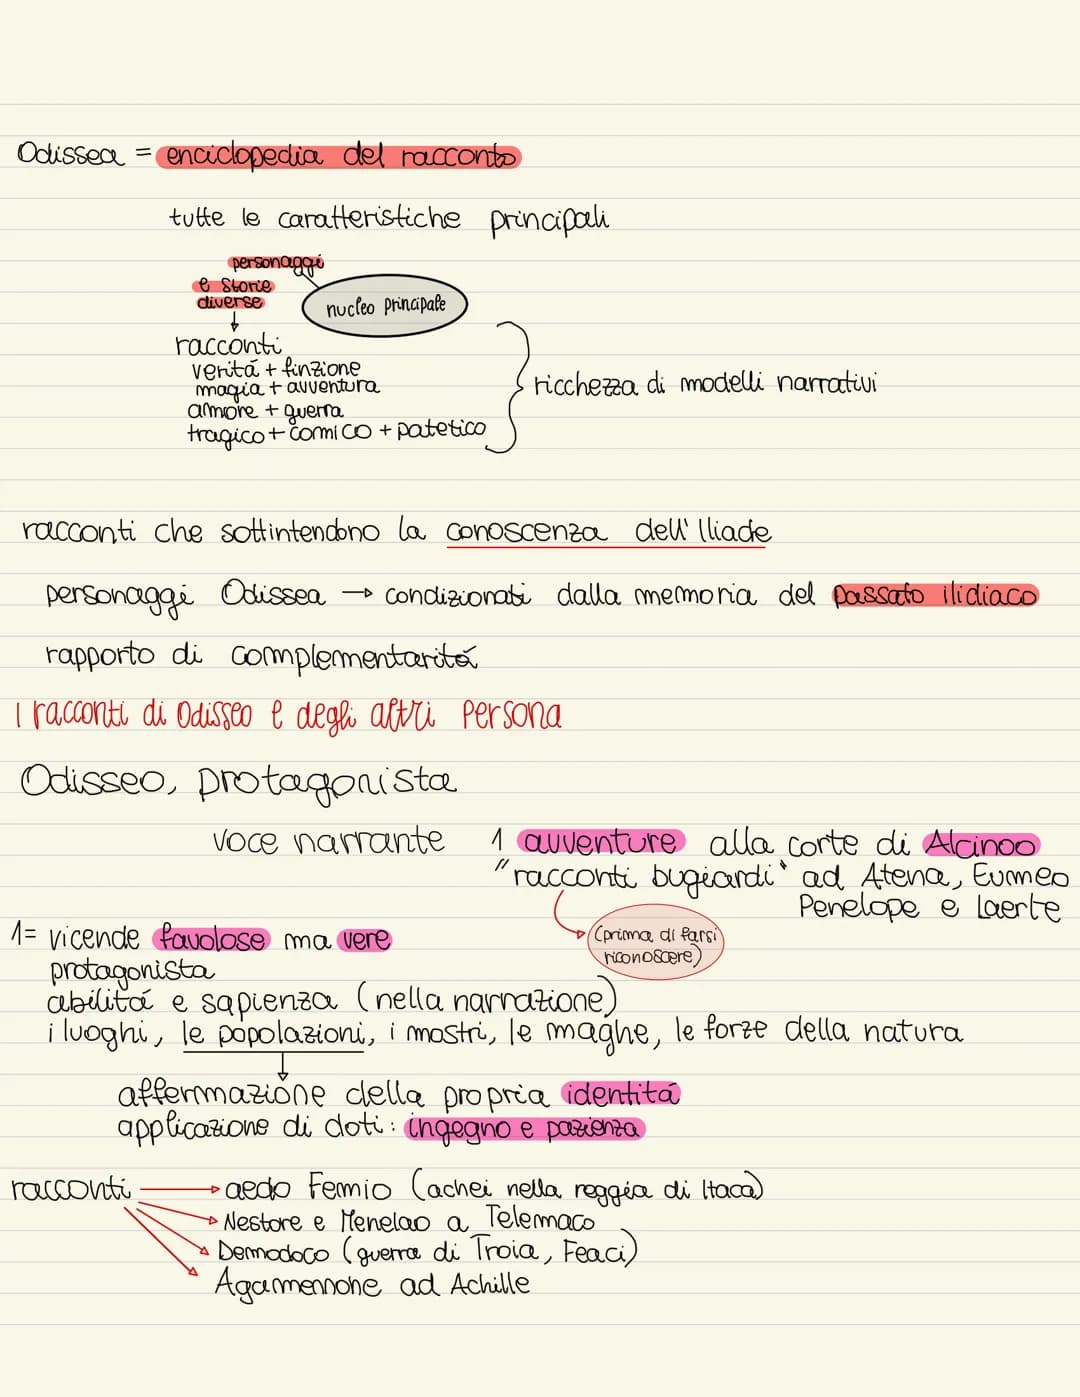 Odissea = enciclopedia del racconto
tutte le caratteristiche principali
personaggi
e storie
diverse
nucleo principale
racconti
veritá + finzione
magia + avventura
amore + guerra
tragico + comico + patetico
ricchezza di modelli narrativi
racconti che sottintendono la conoscenza dell'Iliade
personaggi Odissea → condizionati dalla memoria del passato ilidiaco
rapporto di complementaritá
I racconti di Odisseo e degli altri persona
Odisseo, protagonista
voce narrante 1 avventure alla corte di Alcinoo
"racconti bugiardi" ad Atena, Eumeo
Penelope e Laerte
(prima di farsi
riconoscere)
1= vicende favolose ma vere
protagonista
abilitá e sapienza (nella narrazione)
i luoghi, le popolazioni, i mostri, le maghe, le forze della natura
affermazione della propria identitá
applicazione di doti: ingegno e pazienza
racconti → aedo Femio (achei nella reggia di Itaca)
→ Nestore e Menelao a Telemaco
→ Demodoco (guerra di Troia, Feaci)
→ Agamennone ad Achille